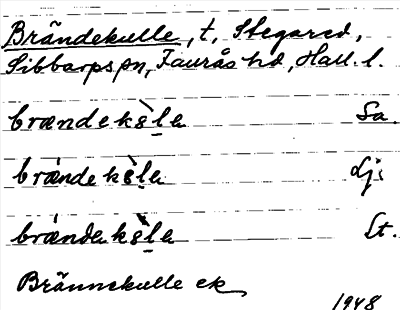 Brändekulle, t, Stegared,
Sibbarps sn, Faurås hd, Hall. l.
brændekɵ̀la Sa.
brǽndekɵ̀la Lj:
brǽndakɵ̀la St.
Brännekulle ek
1948